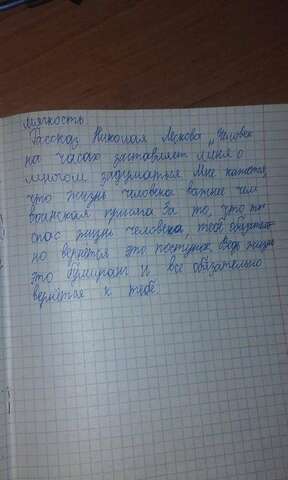 мягкость
Рассказ Николая Лескова „Человек
на часах заставляет меня о
многом задуматься Мне кажется,
что жизнь человека важнее чем
воинская присяга За то, что ты
спас жизнь человека, тебе обязатель
но вернётся это поступок ведь жизнь
это бумиранг и все обязательно
вернётся к тебе.